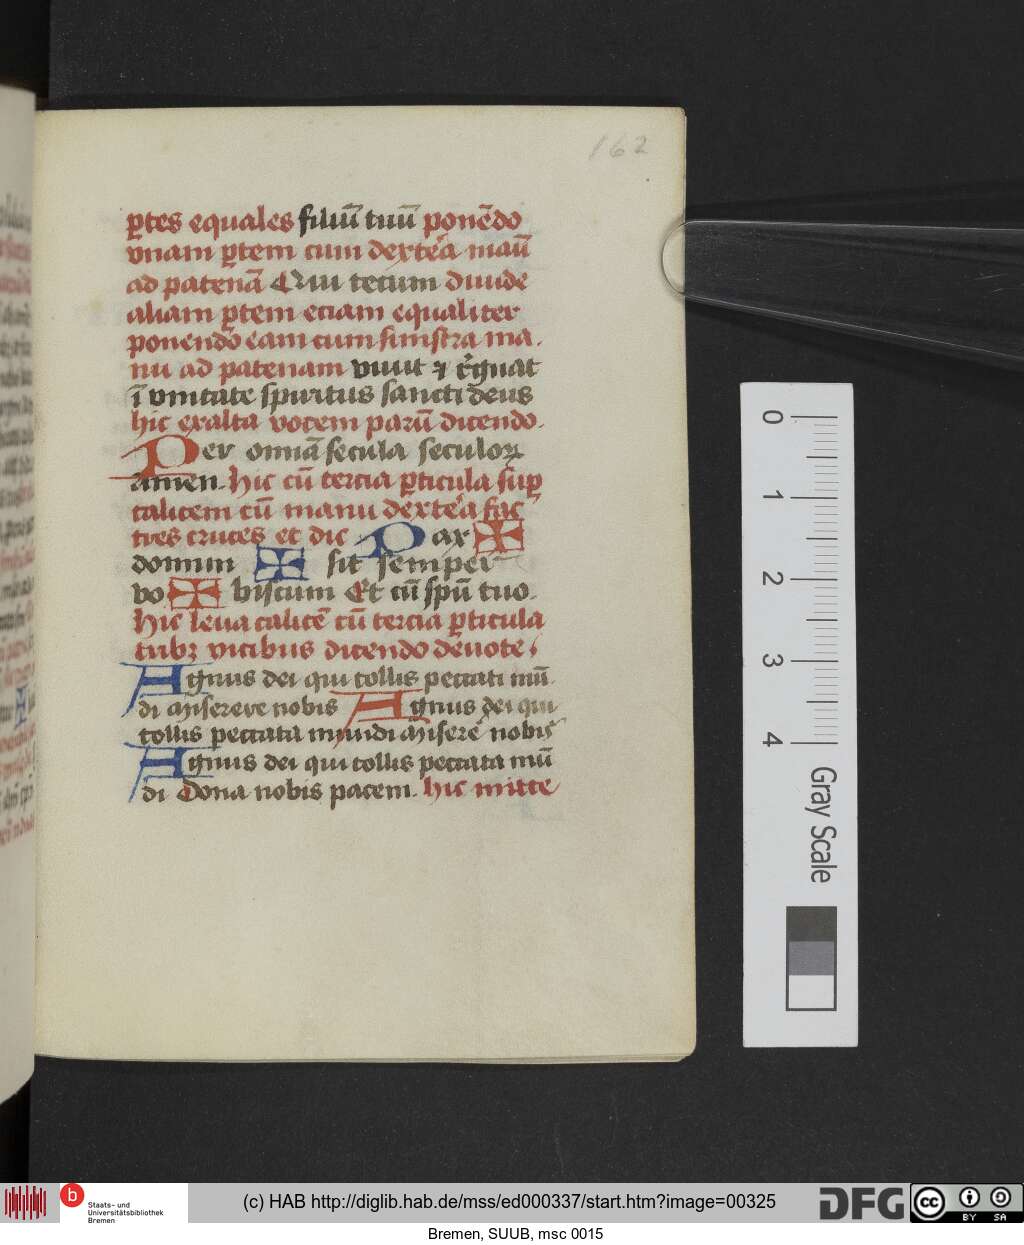 162
ꝑtes equales filiū tuū ponēdo
vnam ꝑtem cum dextera manū
ad patenā Qui tecum diuide
aliam ꝑtem eciam equaliter
ponendo eam cum sinistra ma
nu ad patenam viuit ⁊ regnat
ī vnitate spiritus sancti deus
hic exalta vocem parū dicendo.
Per omnia secula seculoꝝ
amen. hic cū tercia ꝑticula suꝑ
calicem cū manu dextera fac
tres cruces et dic Pax ✠
domini ✠ sit semper
vo ✠ biscum Et cū spū tuo.
Hic leua calicē cū tercia ꝑticula
tribꝫ vicibus dicendo deuote
Agnus dei qui tollis peccata mū
di miserere nobis Agnus dei qui
tollis peccata mundi misere nobis
Agnus dei qui tollis peccata mū
di Dona nobis pacem. hic mitte
0
1
2
3
4
Gray Scale
b Staats- und
Universitätsbibliothek
Bremen
(c) HAB http://diglib.hab.de/mss/ed000337/start.htm?image=00325
DFG
cc BY SA
Bremen, SUUB, msc 0015